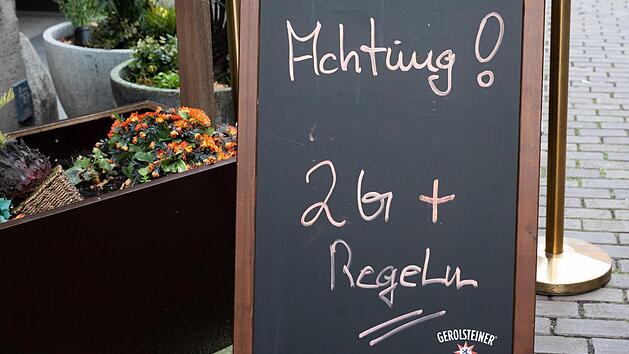 Achtung!
2G+
Regeln
GEROLSTEINER